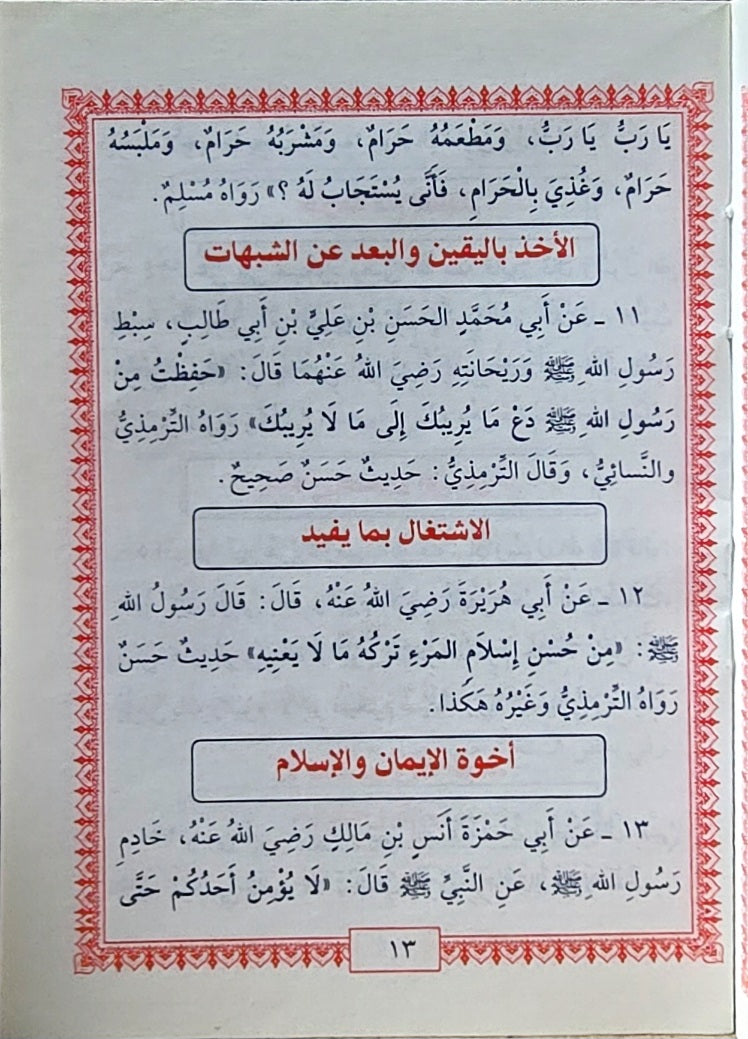 يَا رَبُّ يَا رَبُّ، وَمَطْعَمُهُ حَرَامٌ، وَمَشْرَبُهُ حَرَامٌ، وَمَلْبَسُهُ
حَرَامٌ، وَغُذِيَ بِالْحَرَامِ، فَأَنَّى يُسْتَجَابُ لَهُ ؟» رَوَاهُ مُسْلِمٌ.
الأخذ باليقين والبعد عن الشبهات
١١ ـ عَنْ أَبِي مُحَمَّدٍ الحَسَنِ بْنِ عَلِيِّ بْنِ أَبِي طَالِبٍ، سِبْطِ
رَسُولِ اللهِ ﷺ وَرَيْحَانَتِهِ رَضِيَ اللهُ عَنْهُمَا قَالَ: «حَفِظْتُ مِنْ
رَسُولِ اللهِ ﷺ دَعْ مَا يُرِيبُكَ إِلَى مَا لَا يُرِيبُكَ» رَوَاهُ التِّرْمِذِيُّ
والنَّسائِيُّ، وَقَالَ التِّرْمِذِيُّ: حَدِيثٌ حَسَنٌ صَحِيحٌ.
الاشتغال بما يفيد
١٢ ـ عَنْ أَبِي هُرَيْرَةَ رَضِيَ اللهُ عَنْهُ، قَالَ: قَالَ رَسُولُ اللهِ
ﷺ: «مِنْ حُسْنِ إِسْلَامِ المَرْءِ تَرْكُهُ مَا لَا يَعْنِيهِ» حَدِيثٌ حَسَنٌ
رَوَاهُ التِّرْمِذِيُّ وَغَيْرُهُ هَكَذا.
أخوة الإيمان والإسلام
١٣ ـ عَنْ أَبِي حَمْزَةَ أَنَسٍ بْنِ مَالِكٍ رَضِيَ اللهُ عَنْهُ، خَادِمِ
رَسُولِ اللهِ ﷺ، عَنِ النَّبِيِّ ﷺ قَالَ: «لَا يُؤْمِنُ أَحَدُكُمْ حَتَّى
١٣